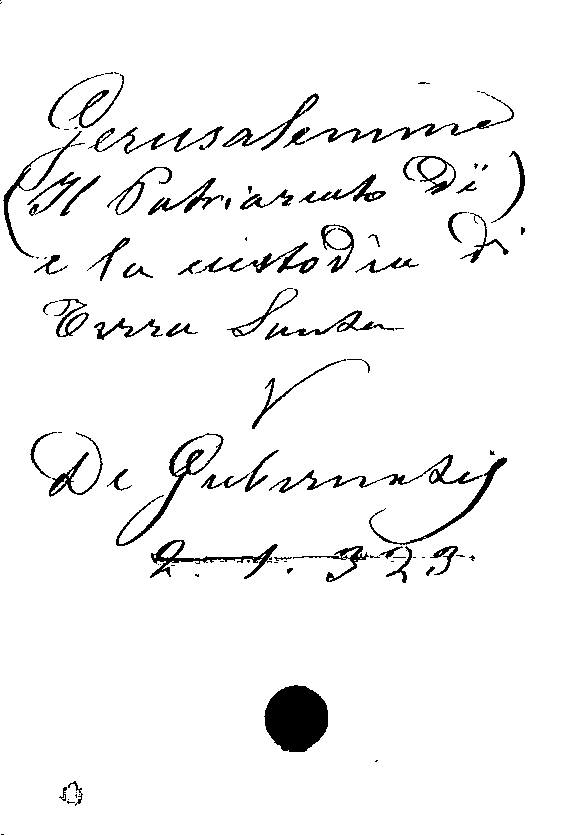 Gerusalemme
(Il Patriarcato di)
e la custodia di
Terra Santa
V
De Gubernatis
2. 1. 323.